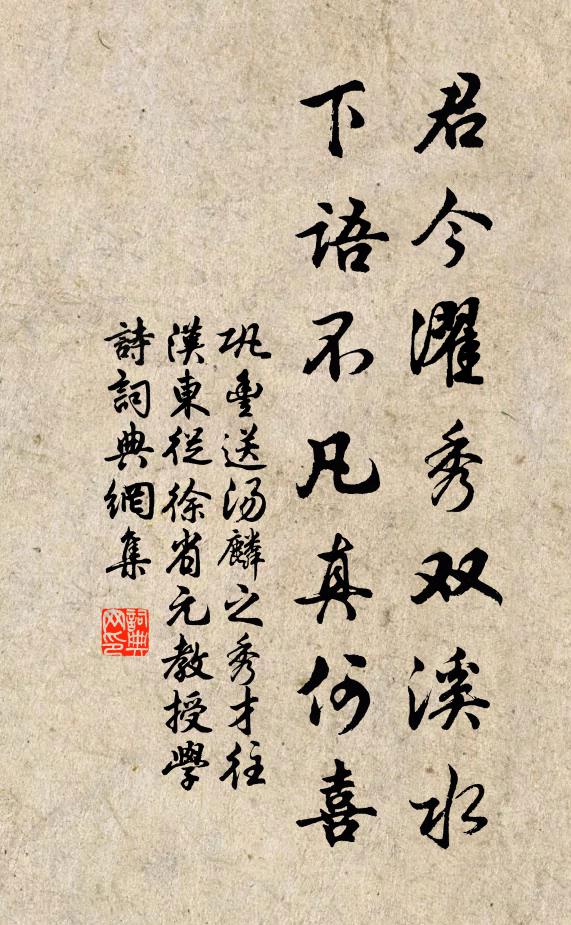 君今濯秀双溪水
下语不凡真何喜
巩丰送汤麟之秀才往
汉東從徐省元教授學
詩詞典網集
詞典网印